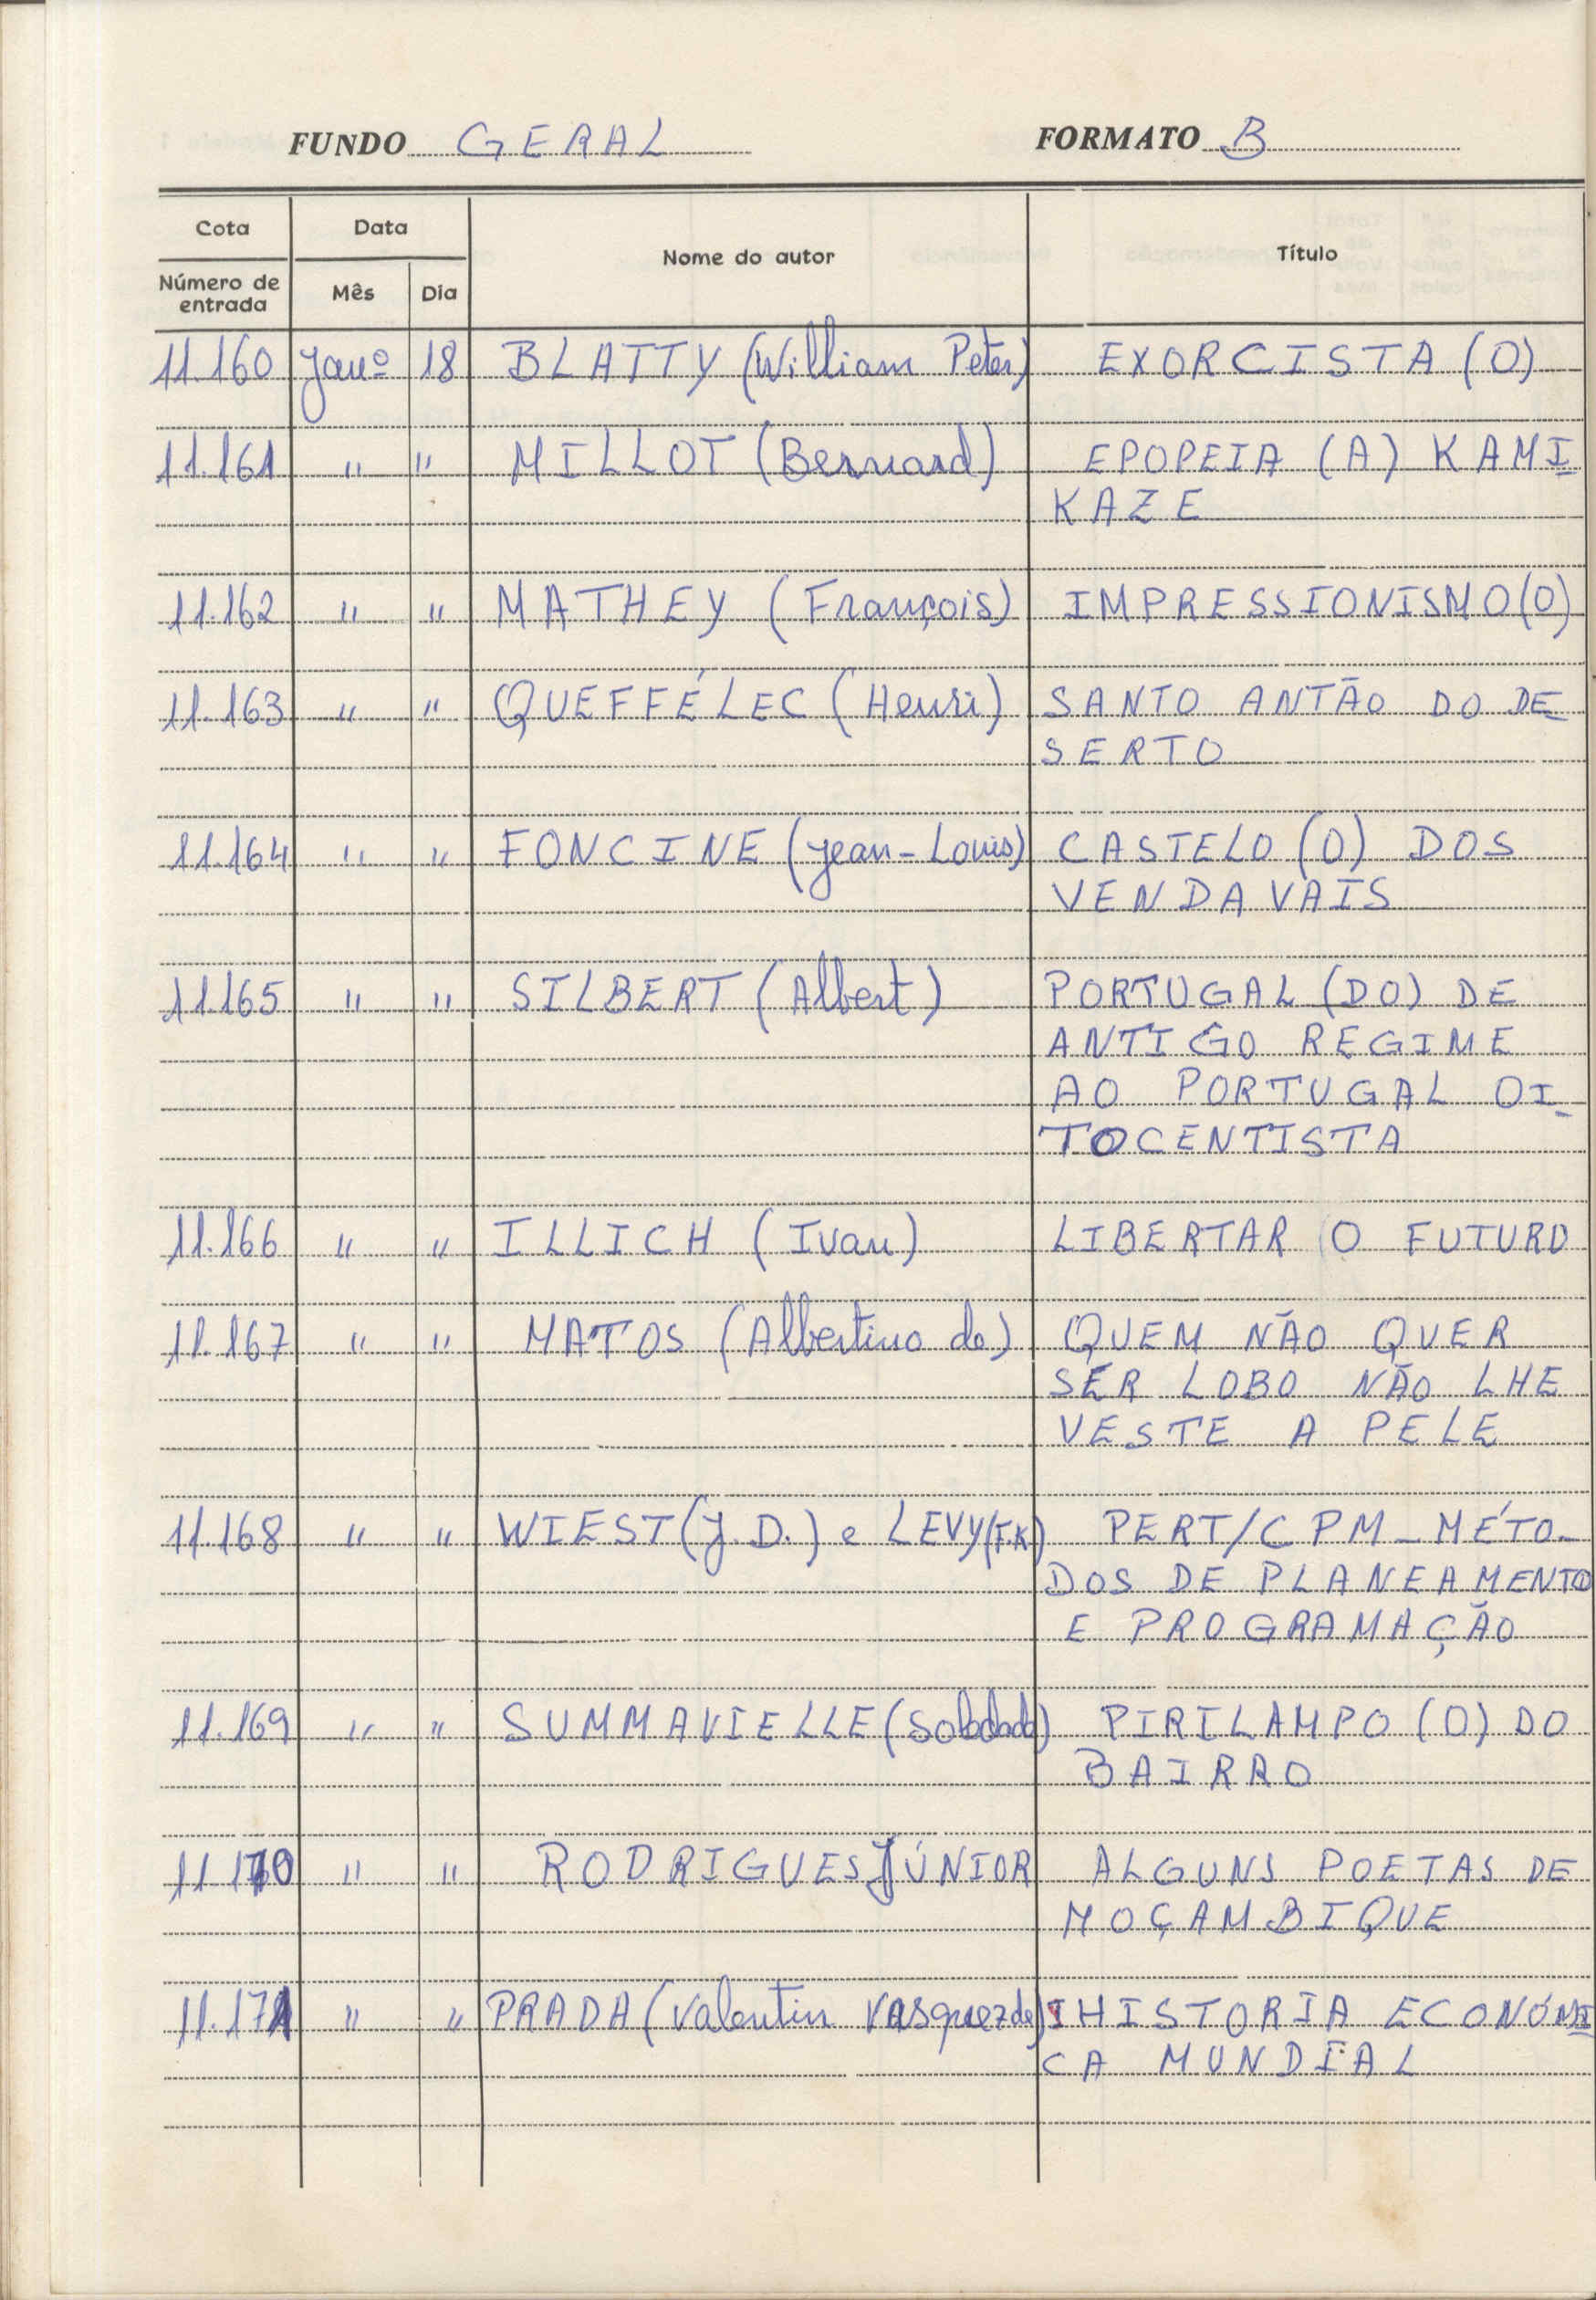 FUNDO GERAL FORMATO B
Cota Data Nome do autor Título
Número de entrada Mês Dia
11.160 Janº 18 BLATTY (William Peter) EXORCISTA (O)
11.161 " " MILLOT (Bernard) EPOPEIA (A) KAMI
KAZE
11.162 " " MATHEY (François) IMPRESSIONISMO (O)
11.163 " " QUEFFÉLEC (Henri) SANTO ANTÃO DO DE
SERTO
11.164 " " FONCINE (Jean-Louis) CASTELO (O) DOS
VENDAVAIS
11165 " " SILBERT (Albert) PORTUGAL (DO) DE
ANTIGO REGIME
AO PORTUGAL OI
TOCENTISTA
11.166 " " ILLICH (Ivan) LIBERTAR O FUTURO
11.167 " " MATOS (Albertino de) QUEM NÃO QUER
SER LOBO NÃO LHE
VESTE A PELE
11.168 " " WIEST (J.D.) e LEVY (F.K) PERT/CPM-MÉTO-
DOS DE PLANEAMENTO
E PROGRAMAÇÃO
11.169 " " SUMMAVIELLE (Soledade) PIRILAMPO (O) DO
BAIRRO
11 170 " " RODRIGUES JÚNIOR ALGUNS POETAS DE
MOÇAMBIQUE
11.171 " " PRADA (Valentin Vasquez de) HISTORIA ECONÓMI
CA MUNDIAL